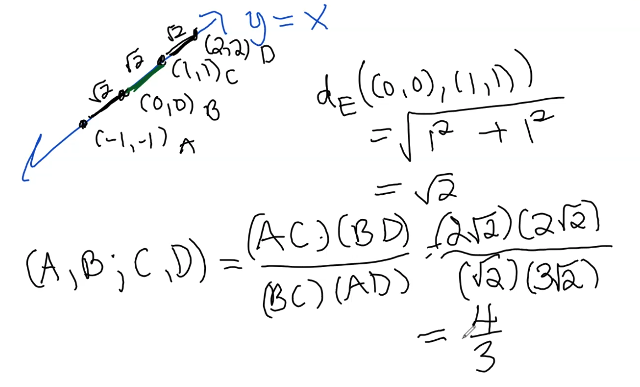 y = x
√2
(2,2) D
√2
(1,1) C
√2
(0,0) B
(-1,-1) A
d_E((0,0),(1,1))
= √(1² + 1²)
= √2
(A,B;C,D) = (AC)(BD) / (BC)(AD) = (2√2)(2√2) / (√2)(3√2)
= 4/3